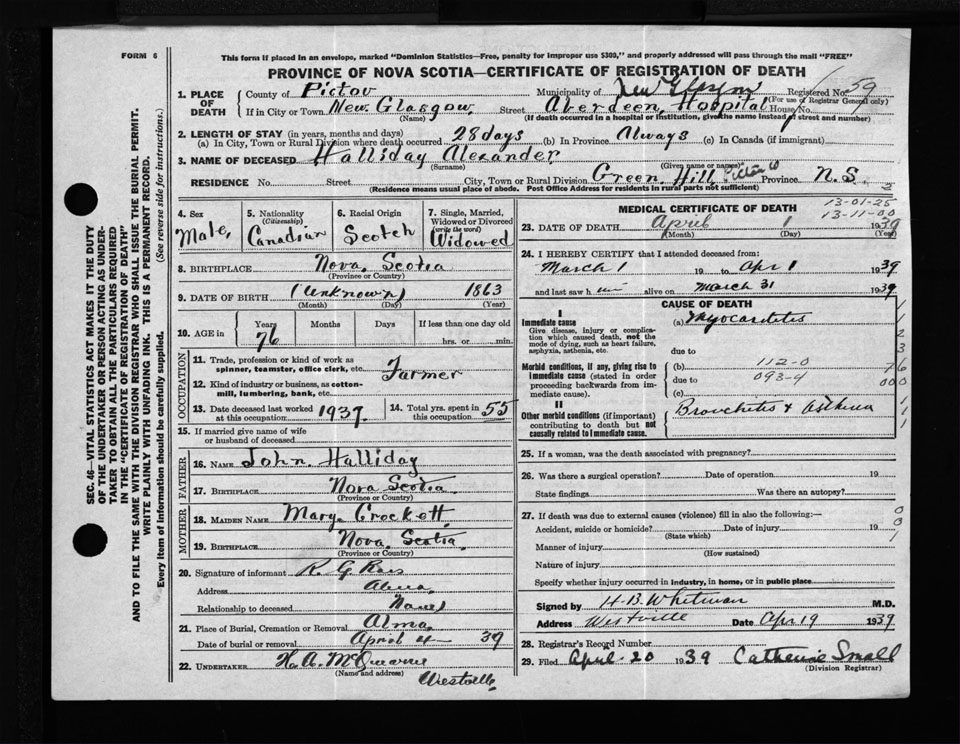 FORM 6
This form if placed in an envelope, marked "Dominion Statistics—Free, penalty for improper use $300," and properly addressed will pass through the mail "FREE"
PROVINCE OF NOVA SCOTIA—CERTIFICATE OF REGISTRATION OF DEATH
SEC. 46—VITAL STATISTICS ACT MAKES IT THE DUTY
OF THE UNDERTAKER OR PERSON ACTING AS UNDER-
TAKER TO OBTAIN ALL THE PARTICULARS REQUIRED
IN THE "CERTIFICATE OF REGISTRATION OF DEATH"
AND TO FILE THE SAME WITH THE DIVISION REGISTRAR WHO SHALL ISSUE THE BURIAL PERMIT.
WRITE PLAINLY WITH UNFADING INK. THIS IS A PERMANENT RECORD.
Every item of information should be carefully supplied. (See reverse side for instructions.)
1. PLACE OF DEATH County of Pictou Municipality of Registered No. 59
(For use of Registrar General only)
If in City or Town New Glasgow Street Aberdeen Hospital House No.
(Name) (If death occurred in a hospital or institution, give the name instead of street and number)
2. LENGTH OF STAY (in years, months and days)
(a) In City, Town or Rural Division where death occurred 28 days (b) In Province Always (c) In Canada (if immigrant)
3. NAME OF DECEASED Halliday Alexander
(Surname) (Given name or names)
RESIDENCE No. Street City, Town or Rural Division Green Hill Pictou Co Province N.S.
(Residence means usual place of abode. Post Office Address for residents in rural parts not sufficient)
4. Sex Male
5. Nationality (Citizenship) Canadian
6. Racial Origin Scotch
7. Single, Married, Widowed or Divorced (write the word) Widowed
8. BIRTHPLACE Nova Scotia
(Province or Country)
9. DATE OF BIRTH (Unknown) 1863
(Month) (Day) (Year)
10. AGE in Years 76 Months Days If less than one day old hrs. or min.
OCCUPATION
11. Trade, profession or kind of work as spinner, teamster, office clerk, etc. Farmer
12. Kind of industry or business, as cotton-mill, lumbering, bank, etc.
13. Date deceased last worked at this occupation 1937
14. Total yrs. spent in this occupation 55
15. If married give name of wife or husband of deceased
FATHER
16. NAME John Halliday
17. BIRTHPLACE Nova Scotia
(Province or Country)
MOTHER
18. MAIDEN NAME Mary Crockett
19. BIRTHPLACE Nova Scotia
(Province or Country)
20. Signature of informant R. G. Ross
Address Alma
Relationship to deceased
21. Place of Burial, Cremation or Removal Alma
Date of burial or removal April 4 39
22. UNDERTAKER
(Name and address)
Westville
MEDICAL CERTIFICATE OF DEATH
13-01-25
13-11-00
23. DATE OF DEATH April 1 1939
(Month) (Day) (Year)
24. I HEREBY CERTIFY that I attended deceased from:
March 1 19 to Apr 1 1939
and last saw h im alive on March 31 1939
CAUSE OF DEATH
I
Immediate cause
Give disease, injury or complication which caused death, not the mode of dying, such as heart failure, asphyxia, asthenia, etc.
(a) Myocarditis
due to
Morbid conditions, if any, giving rise to immediate cause (stated in order proceeding backwards from immediate cause).
(b) 112-0
due to 093-4
(c)
II
Other morbid conditions (if important) contributing to death but not causally related to immediate cause.
Bronchitis & Asthma
25. If a woman, was the death associated with pregnancy?
26. Was there a surgical operation? Date of operation 19
State findings Was there an autopsy?
27. If death was due to external causes (violence) fill in also the following:—
Accident, suicide or homicide? Date of injury 19
(State which)
Manner of injury
(How sustained)
Nature of injury
Specify whether injury occurred in industry, in home, or in public place
Signed by H. B. Whitman M.D.
Address Westville Date Apr 19 1939
28. Registrar's Record Number
29. Filed April 20 1939 Catherine Small
(Division Registrar)